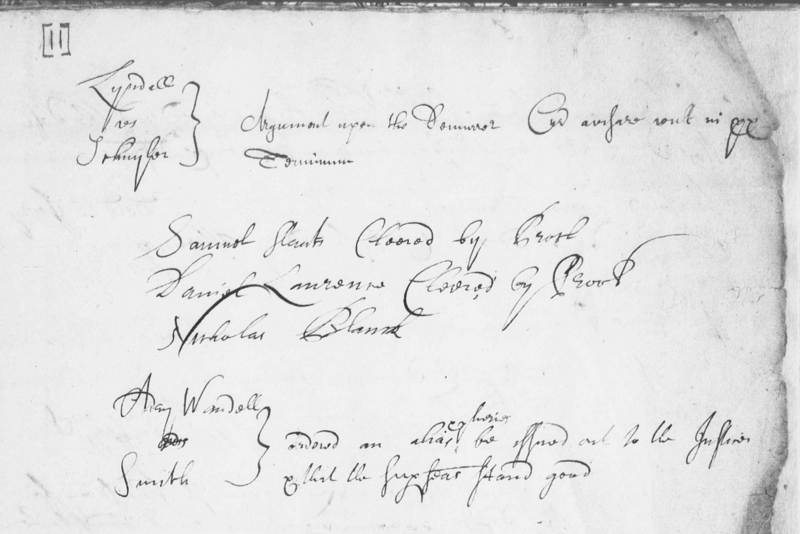 [11]
Lyndell
vs
Schuyler } Argument upon the Demurrer Cur advisare vult in px
Terminum
Samuel Slaats Cleered by Procl
Daniel Laurense Cleered by Procl
Nicholas Blanck
Adry Wandell
Smith } ordered an alias be issued out to the Justices
& that the Supseas stand good